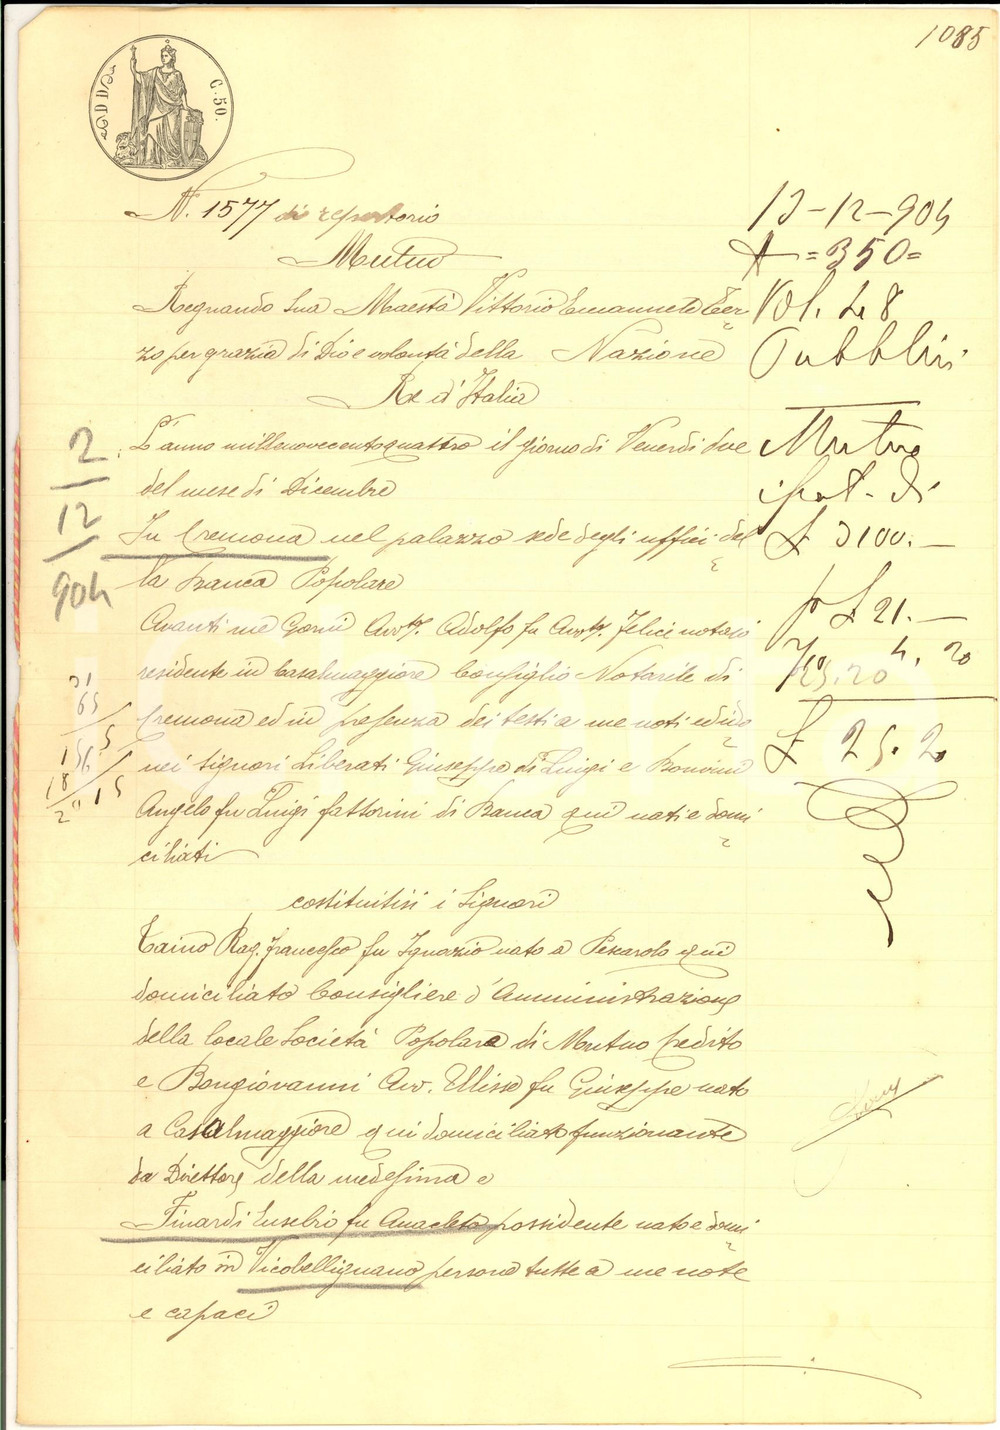 1085
C. 50.
N. 1577 di repertorio
Mutuo
Regnando Sua Maestà Vittorio Emanuele Ter
zo per grazia di Dio e volontà della Nazione
Re d'Italia
L'anno millenovecentoquattro il giorno di Venerdì due
del mese di Dicembre
In Cremona nel palazzo sede degli uffici del
la Banca Popolare
Avanti me Gorni Avv. Adolfo fu Avv. Felice notaio
residente in Casalmaggiore Consiglio Notarile di
Cremona ed in presenza dei testi a me noti ed ido
nei signori Liberati Giuseppe di Luigi e Bonvini
Angelo fu Luigi fattorini di Banca qui nati e domi
ciliati
costituitisi i Signori
Taino Rag. Francesco fu Ignazio nato a Pescarolo qui
domiciliato Consigliere d'Amministrazione
della locale Società Popolare di Mutuo Credito
e Bongiovanni Avv. Ulisse fu Giuseppe nato
a Casalmaggiore qui domiciliato funzionante
da Direttore della medesima e
Finardi Eusebio fu Anacleto possidente nato e domi
ciliato in Vicobellignano persone tutte a me note
e capaci
13-12-904
=350=
Vol. 48
Pubblici
Mutuo
ipot. di
£ 3100.—
£ 21.—
4.20
25.20
£ 25.20
2
12
904